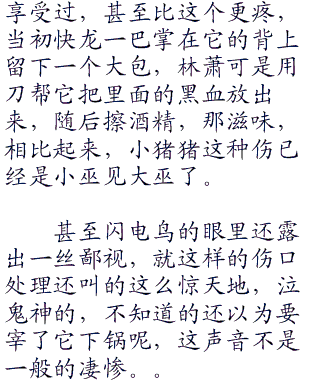 享受过，甚至比这个更疼，
当初快龙一巴掌在它的背上
留下一个大包，林萧可是用
刀帮它把里面的黑血放出
来，随后擦酒精，那滋味，
相比起来，小猪猪这种伤已
经是小巫见大巫了。
甚至闪电鸟的眼里还露
出一丝鄙视，就这样的伤口
处理还叫的这么惊天地，泣
鬼神的，不知道的还以为要
宰了它下锅呢，这声音不是
一般的凄惨。。